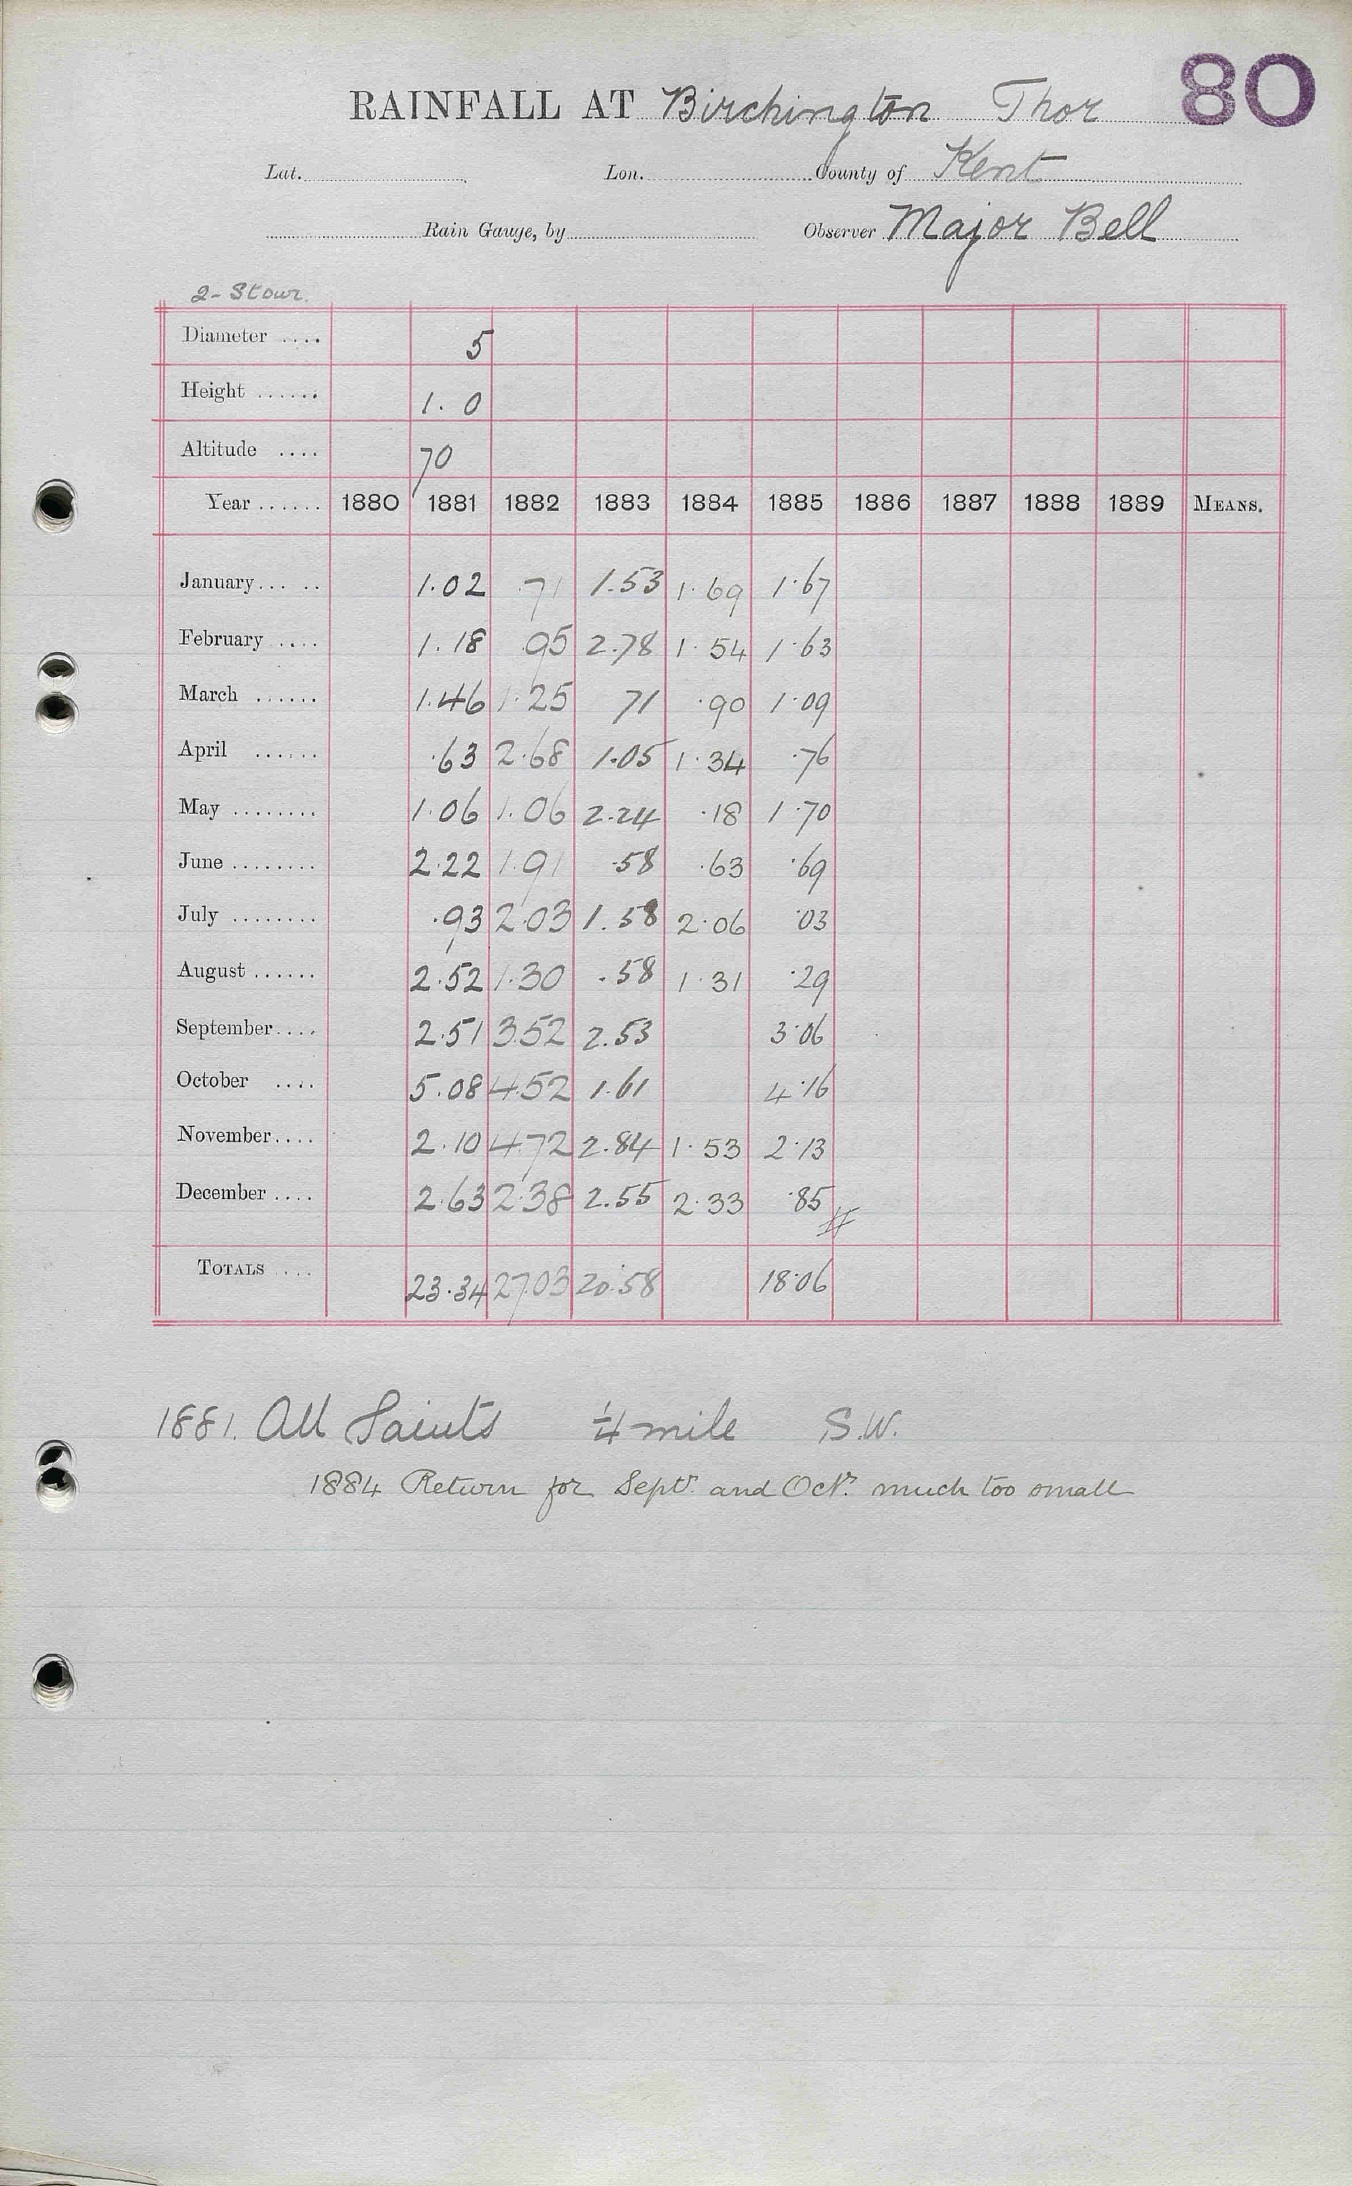 80
RAINFALL AT Birchington Thor
Lat. Lon. County of Kent
Rain Gauge, by Observer Major Bell
2- Stour.
Diameter .... 5
Height ...... 1. 0
Altitude .... 70
Year ...... 1880 1881 1882 1883 1884 1885 1886 1887 1888 1889 MEANS.
January... .. 1.02 .71 1.53 1.69 1.67
February .... 1.18 .95 2.78 1.54 1.63
March ...... 1.46 1.25 71 .90 1.09
April ...... .63 2.68 1.05 1.34 .76
May ........ 1.06 1.06 2.24 .18 1.70
June ........ 2.22 1.91 .58 .63 .69
July ........ .93 2.03 1.58 2.06 .03
August ...... 2.52 1.30 .58 1.31 .29
September.... 2.51 3.52 2.53 3.06
October .... 5.08 4.52 1.61 4.16
November.... 2.10 4.72 2.84 1.53 2.13
December .... 2.63 2.38 2.55 2.33 .85
TOTALS .... 23.34 27.03 20.58 18.06
1881. All Saints 1/4 mile S.W.
1884 Return for Septr. and Octr. much too small